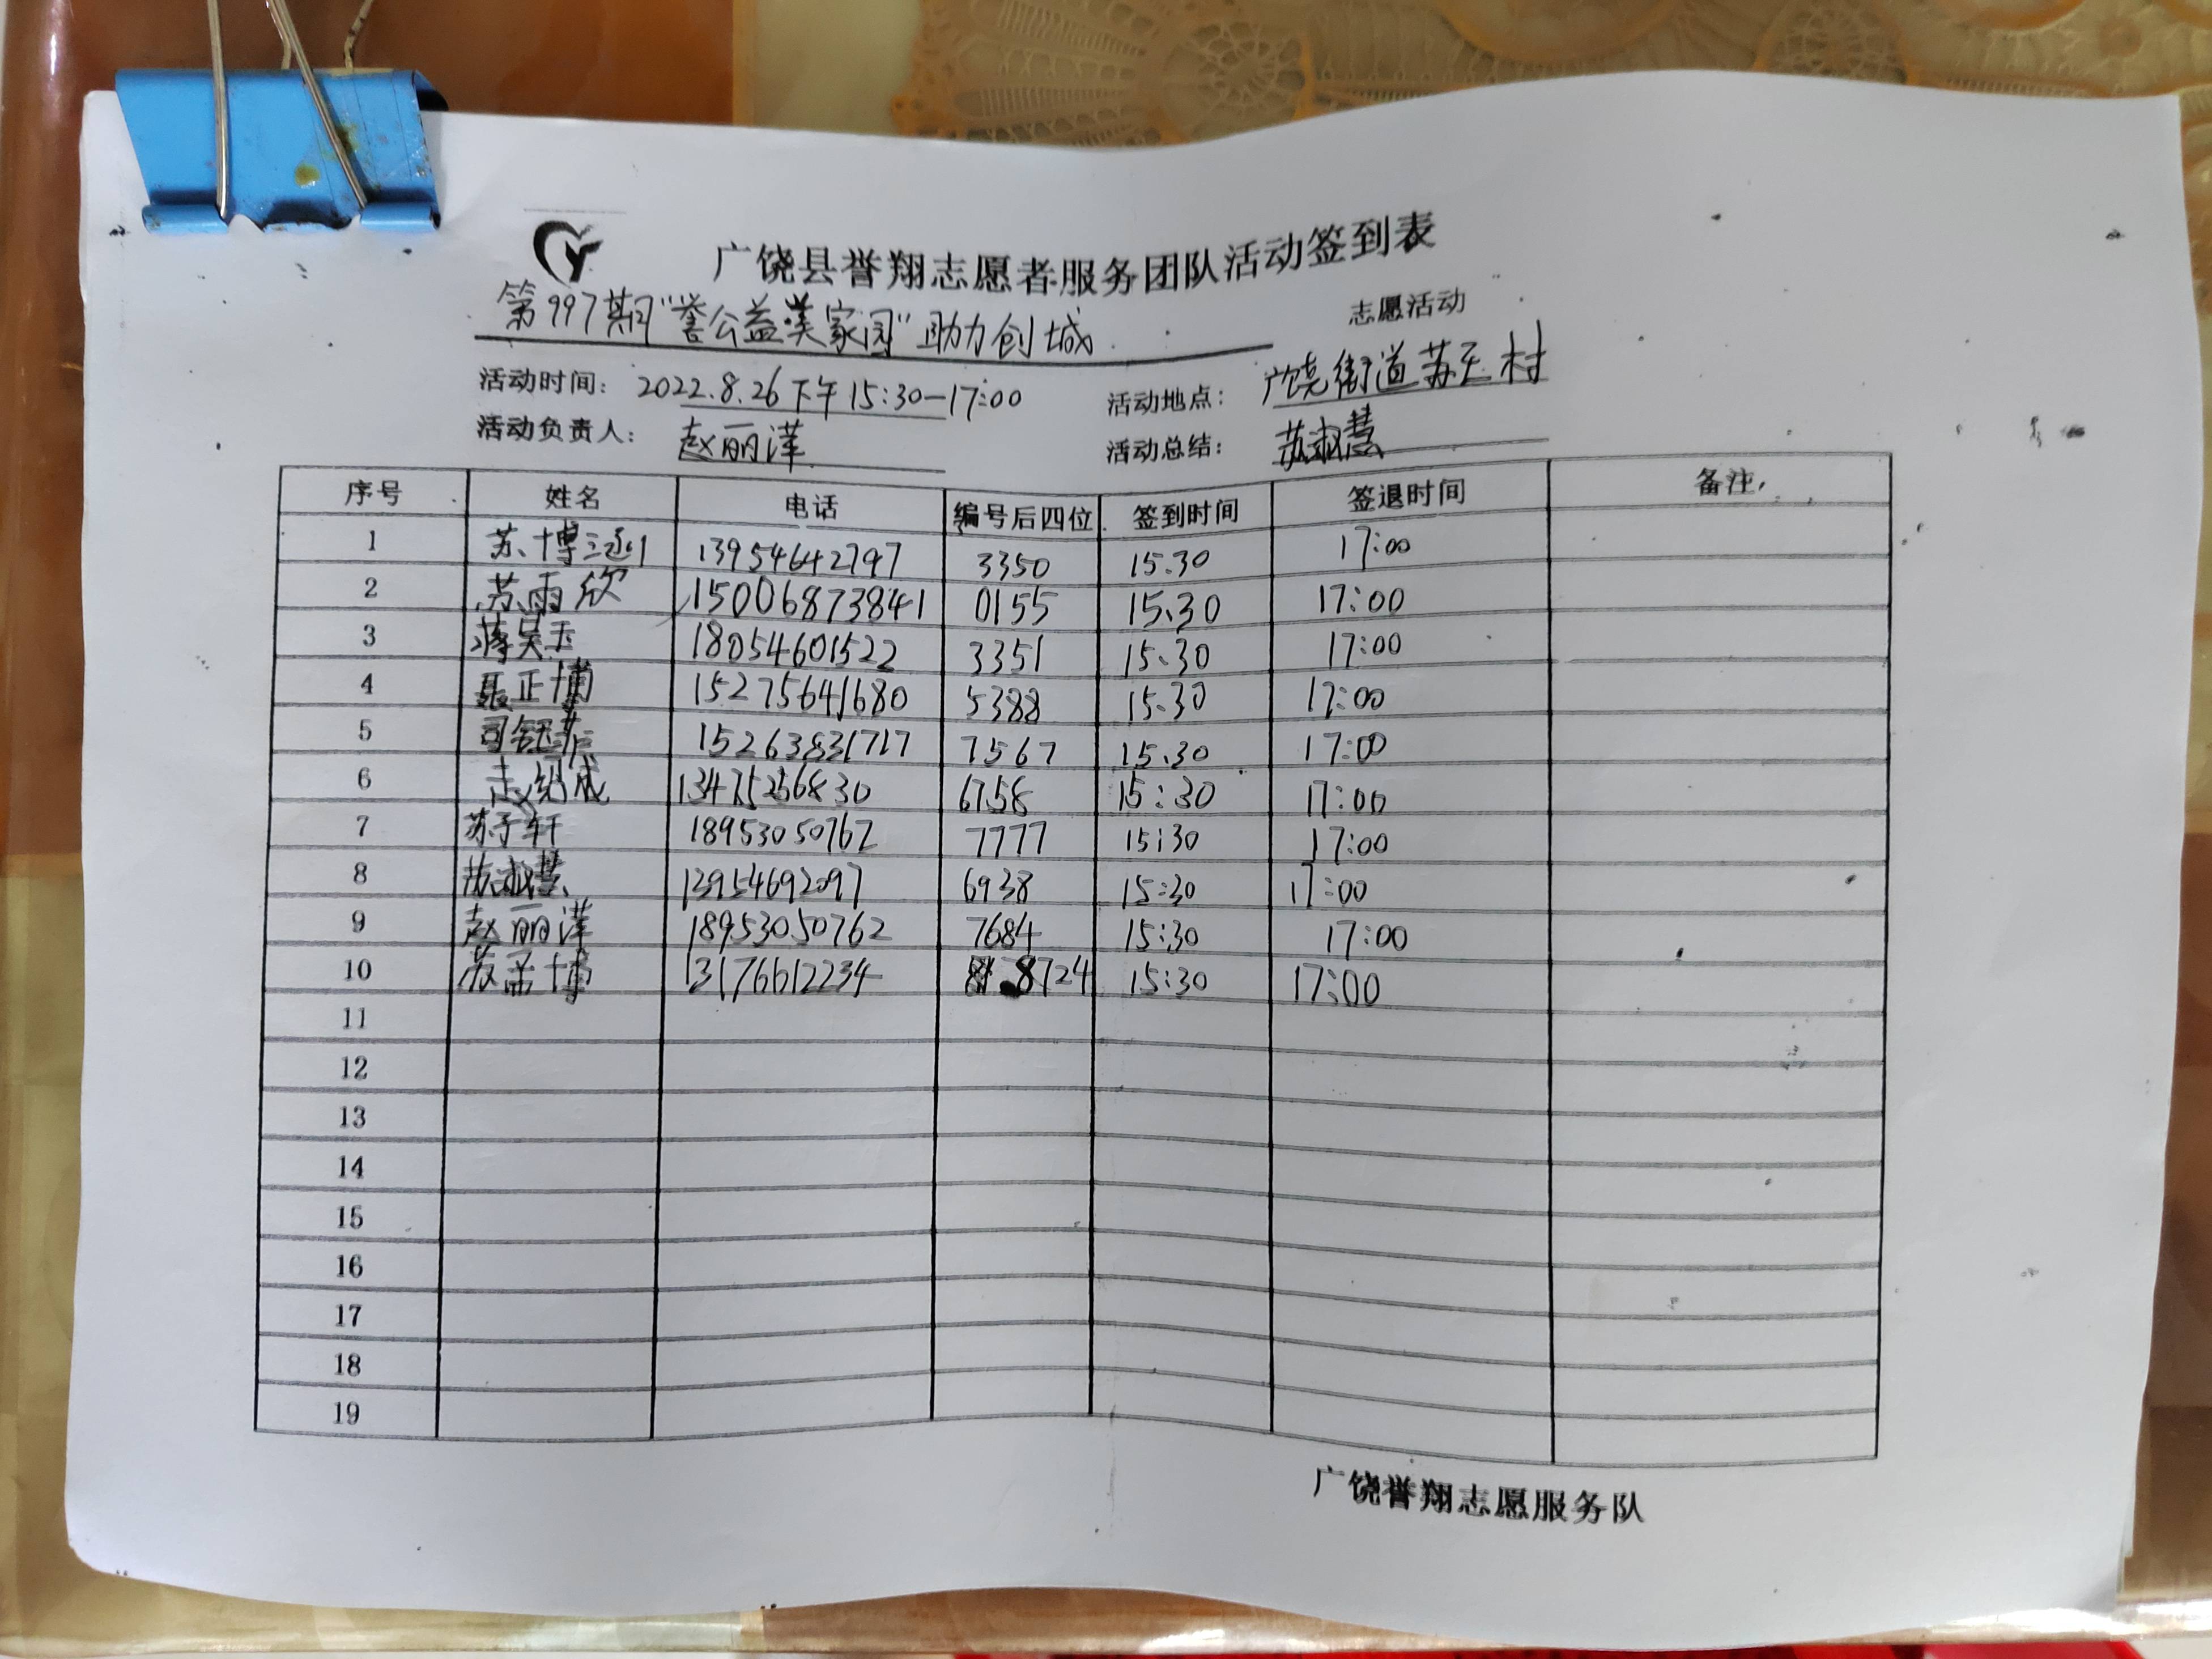 广饶县誉翔志愿者服务团队活动签到表
第997期"誉公益·美家园"助力创城 志愿活动
活动时间: 2022.8.26下午15:30—17:00 活动地点: 广饶街道苏王村
活动负责人: 赵丽萍 活动总结: 苏淑慧
序号 姓名 电话 编号后四位 签到时间 签退时间 备注
1 苏博 13954642797 3350 15:30 17:00
2 苏雨欣 15006873841 0155 15:30 17:00
3 蒋昊玉 18054601522 3351 15:30 17:00
4 聂正博 15275641680 5388 15:30 17:00
5 15263831717 7567 15:30 17:00
6 13475256830 6758 15:30 17:00
7 苏子轩 18953050762 7777 15:30 17:00
8 苏淑慧 13954692097 6938 15:30 17:00
9 赵丽萍 18953050762 7684 15:30 17:00
10 苏孟博 13176612234 8724 15:30 17:00
11
12
13
14
15
16
17
18
19
广饶誉翔志愿服务队